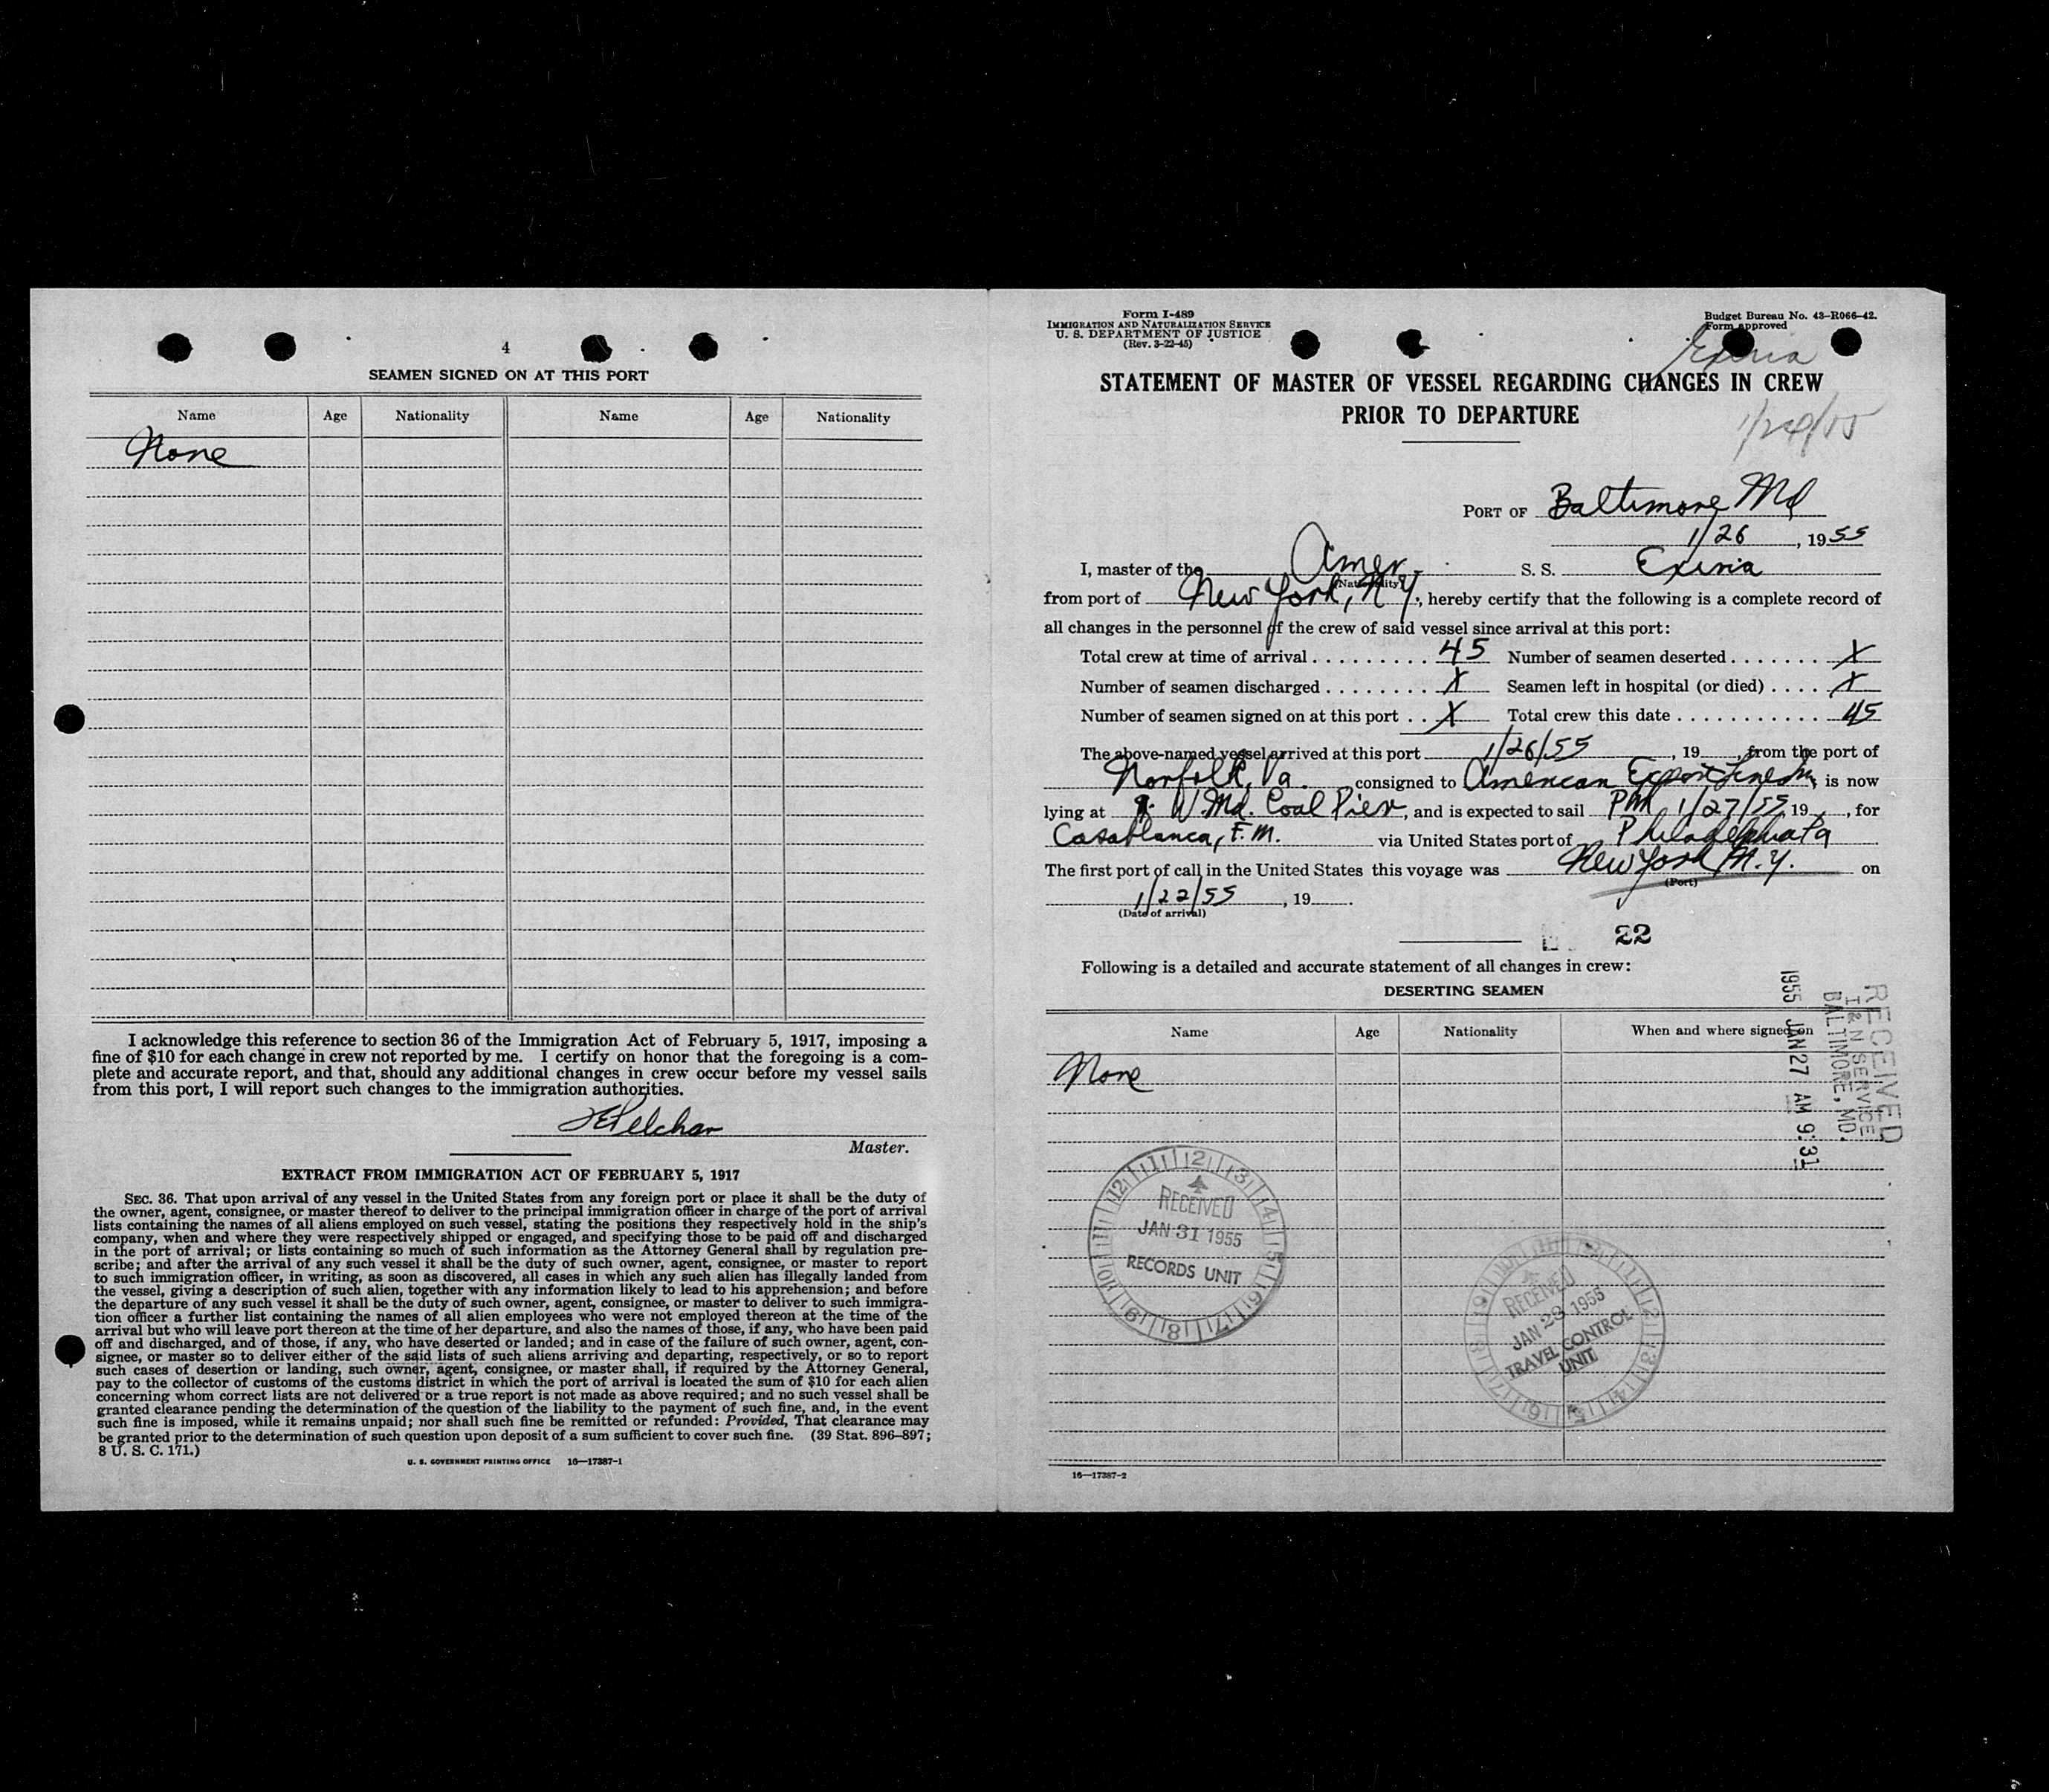 4
SEAMEN SIGNED ON AT THIS PORT
Name Age Nationality Name Age Nationality
None
I acknowledge this reference to section 36 of the Immigration Act of February 5, 1917, imposing a
fine of $10 for each change in crew not reported by me. I certify on honor that the foregoing is a com-
plete and accurate report, and that, should any additional changes in crew occur before my vessel sails
from this port, I will report such changes to the immigration authorities.
Master.
EXTRACT FROM IMMIGRATION ACT OF FEBRUARY 5, 1917
SEC. 36. That upon arrival of any vessel in the United States from any foreign port or place it shall be the duty of
the owner, agent, consignee, or master thereof to deliver to the principal immigration officer in charge of the port of arrival
lists containing the names of all aliens employed on such vessel, stating the positions they respectively hold in the ship's
company, when and where they were respectively shipped or engaged, and specifying those to be paid off and discharged
in the port of arrival; or lists containing so much of such information as the Attorney General shall by regulation pre-
scribe; and after the arrival of any such vessel it shall be the duty of such owner, agent, consignee, or master to report
to such immigration officer, in writing, as soon as discovered, all cases in which any such alien has illegally landed from
the vessel, giving a description of such alien, together with any information likely to lead to his apprehension; and before
the departure of any such vessel it shall be the duty of such owner, agent, consignee, or master to deliver to such immigra-
tion officer a further list containing the names of all alien employees who were not employed thereon at the time of the
arrival but who will leave port thereon at the time of her departure, and also the names of those, if any, who have been paid
off and discharged, and of those, if any, who have deserted or landed; and in case of the failure of such owner, agent, con-
signee, or master so to deliver either of the said lists of such aliens arriving and departing, respectively, or so to report
such cases of desertion or landing, such owner, agent, consignee, or master shall, if required by the Attorney General,
pay to the collector of customs of the customs district in which the port of arrival is located the sum of $10 for each alien
concerning whom correct lists are not delivered or a true report is not made as above required; and no such vessel shall be
granted clearance pending the determination of the question of the liability to the payment of such fine, and, in the event
such fine is imposed, while it remains unpaid; nor shall such fine be remitted or refunded: Provided, That clearance may
be granted prior to the determination of such question upon deposit of a sum sufficient to cover such fine. (39 Stat. 896–897;
8 U. S. C. 171.)
U. S. GOVERNMENT PRINTING OFFICE 16—17387-1
Form I-489
IMMIGRATION AND NATURALIZATION SERVICE
U. S. DEPARTMENT OF JUSTICE
(Rev. 3-22-45)
Budget Bureau No. 43-R066-42.
Form approved
STATEMENT OF MASTER OF VESSEL REGARDING CHANGES IN CREW
PRIOR TO DEPARTURE
PORT OF Baltimore Md
1/26, 1955
I, master of the Amer. S. S. Exiria
(Nationality)
from port of New York, N.Y., hereby certify that the following is a complete record of
all changes in the personnel of the crew of said vessel since arrival at this port:
Total crew at time of arrival 45 Number of seamen deserted X
Number of seamen discharged X Seamen left in hospital (or died) X
Number of seamen signed on at this port X Total crew this date 45
The above-named vessel arrived at this port 1/26/55, 19 , from the port of
Norfolk, Va. consigned to American Export Lines Inc, is now
lying at W. Md. Coal Pier, and is expected to sail PM 1/27/55 19 , for
Casablanca, F.M. via United States port of Philadelphia Pa
The first port of call in the United States this voyage was New York N.Y. on
(Port)
1/22/55, 19 .
(Date of arrival)
22
Following is a detailed and accurate statement of all changes in crew:
DESERTING SEAMEN
Name Age Nationality When and where signed on
None
RECEIVED
I & N SERVICE
BALTIMORE, MD.
1955 JAN 27 AM 9:31
RECEIVED
JAN 31 1955
RECORDS UNIT
RECEIVED
JAN 28 1955
TRAVEL CONTROL
UNIT
16—17387-2